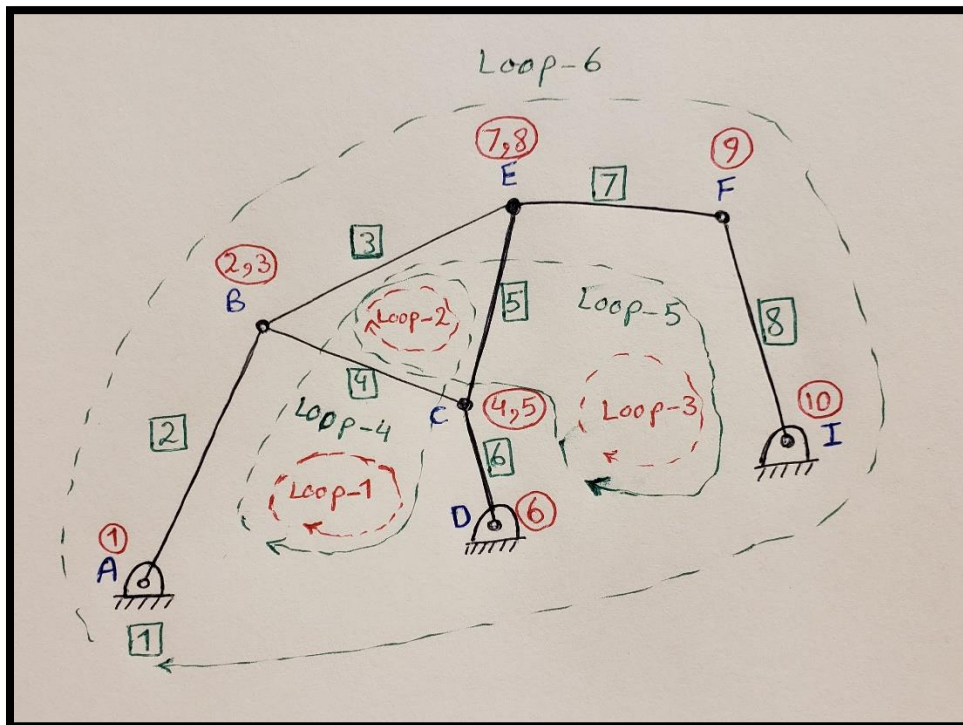 Loop-6
7,8
E
9
F
7
3
2,3
B
Loop-2
5
Loop-5
8
4
Loop-4
C
4,5
Loop-3
10
I
2
6
Loop-1
D
6
1
A
1